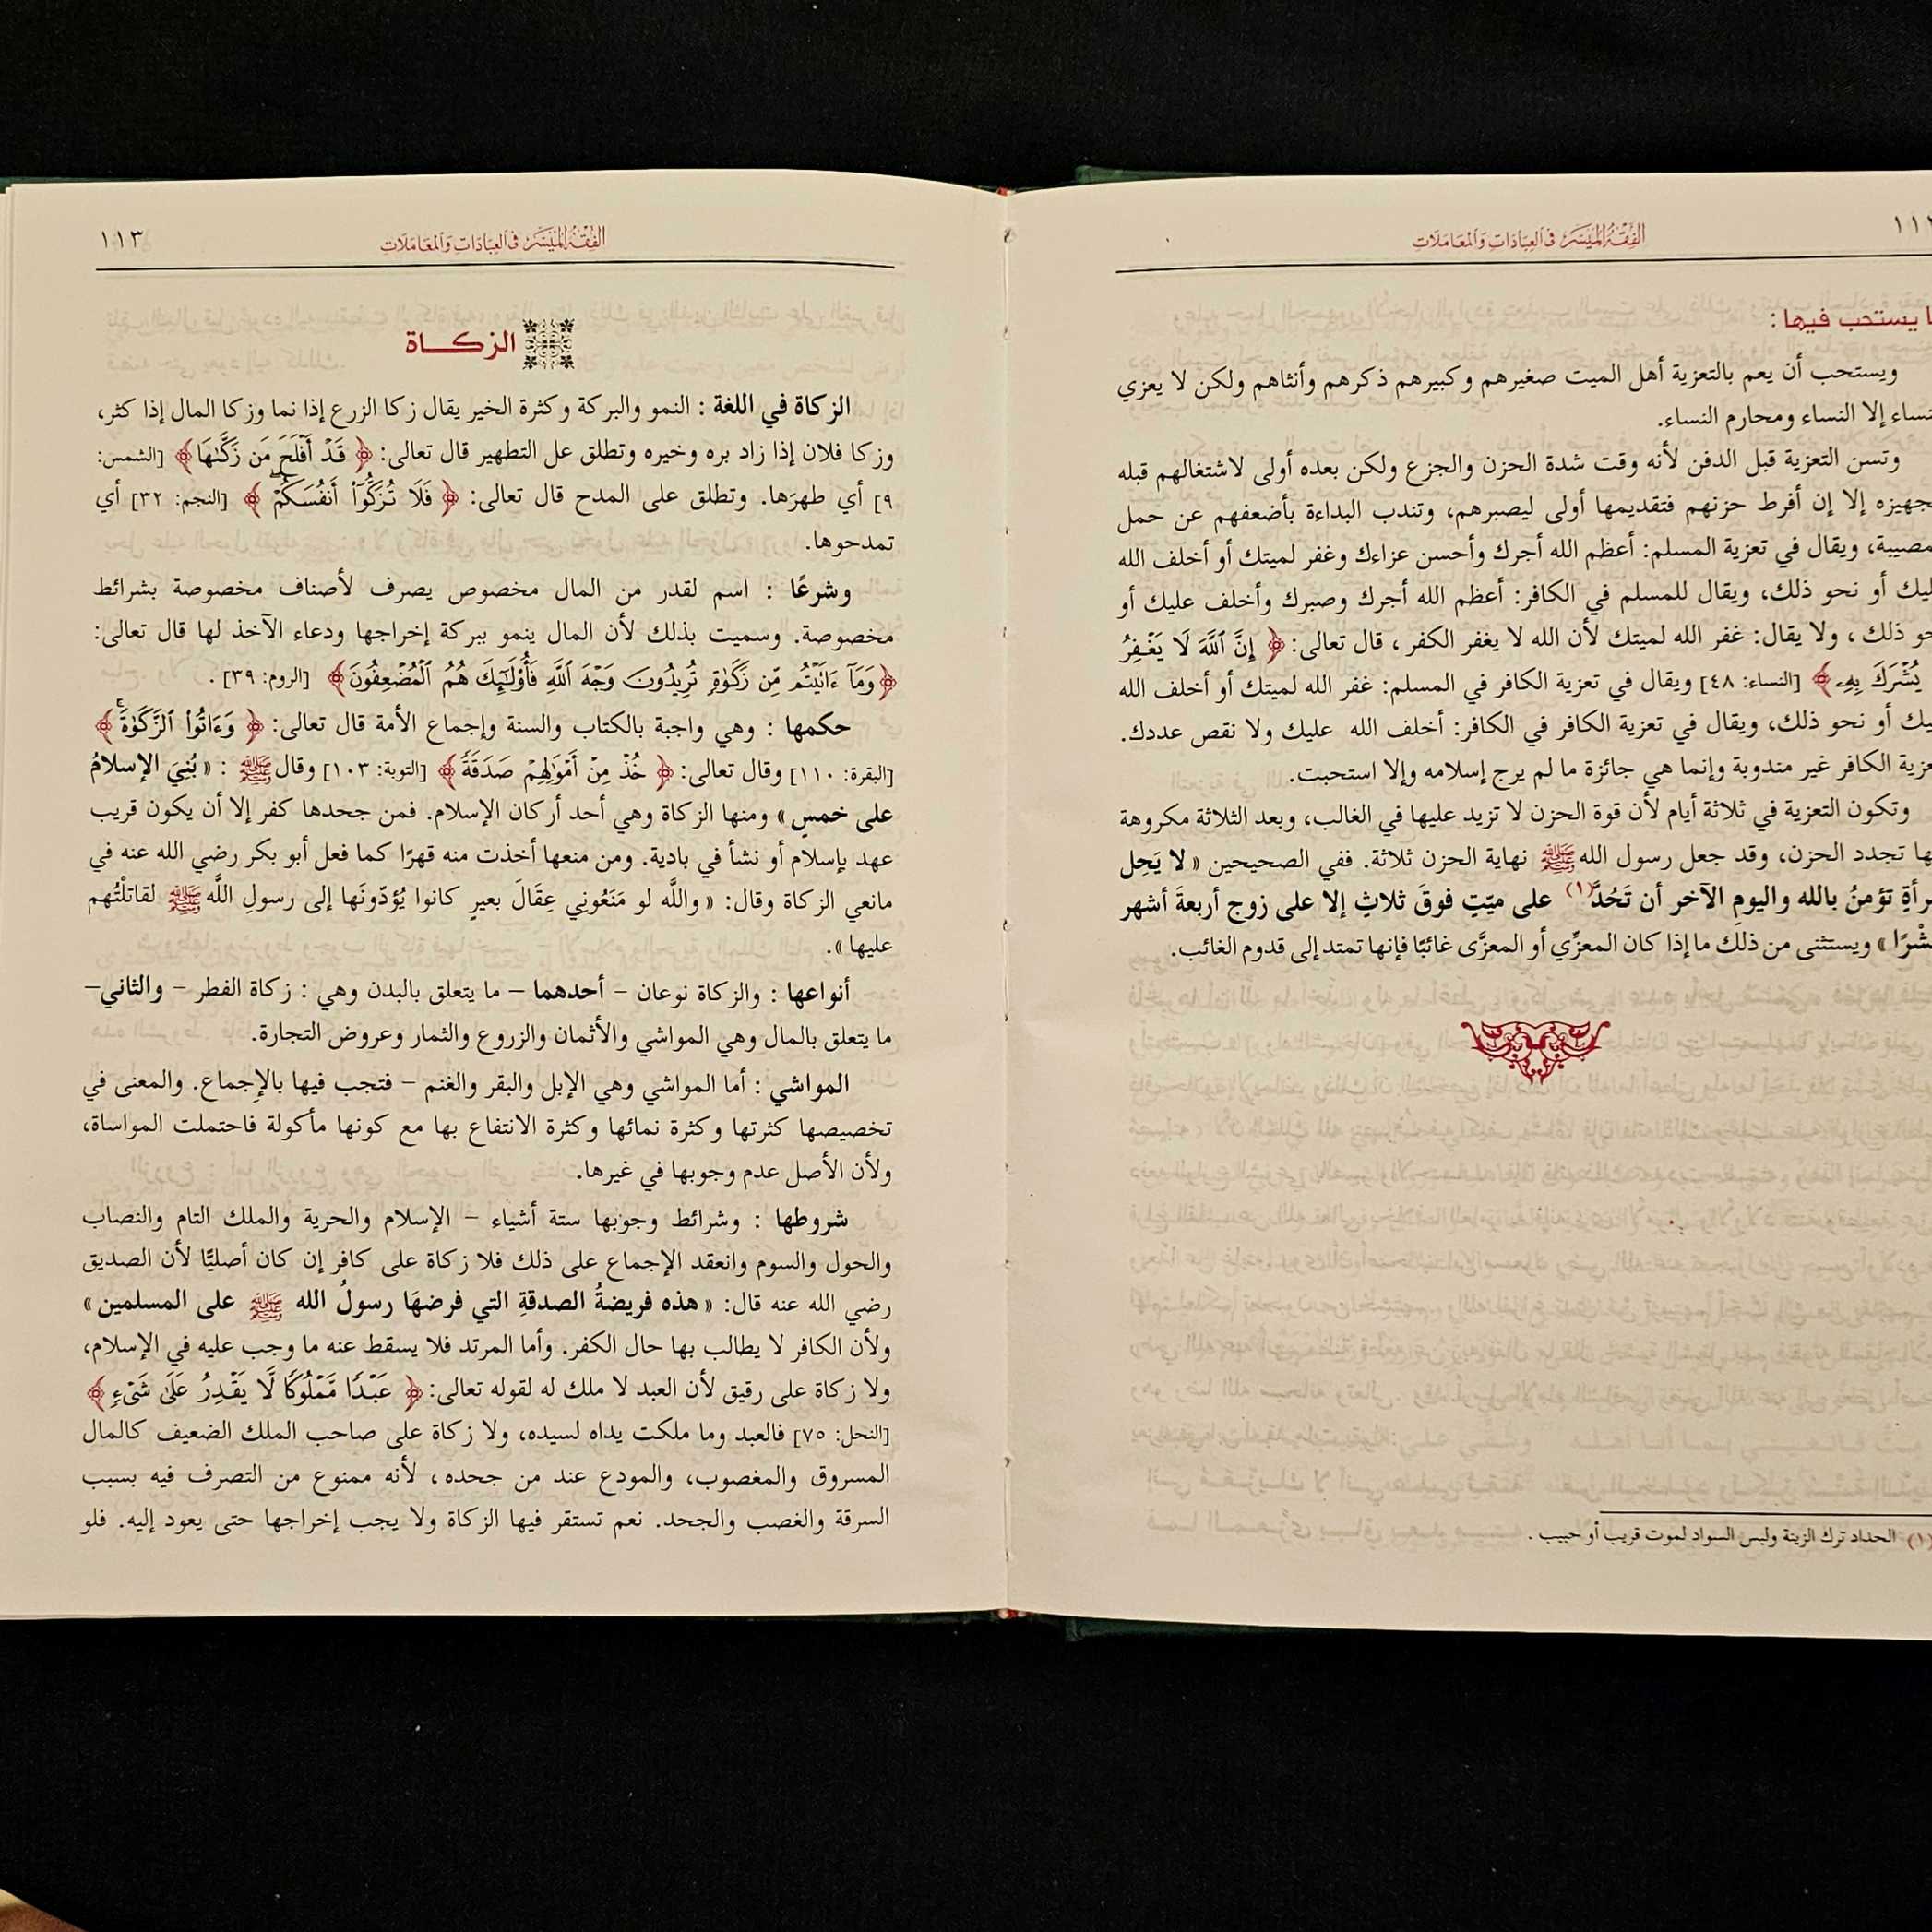 الفقه الميسر في العبادات والمعاملات
يستحب فيها:
ويستحب أن يعم بالتعزية أهل الميت صغيرهم وكبيرهم ذكرهم وأنثاهم ولكن لا يعزي
إلا النساء ومحارم النساء.
وتسن التعزية قبل الدفن لأنه وقت شدة الحزن والجزع ولكن بعده أولى لاشتغالهم قبله
إلا إن أفرط حزنهم فتقديمها أولى ليصبرهم، وتندب البداءة بأضعفهم عن حمل
ويقال في تعزية المسلم: أعظم الله أجرك وأحسن عزاءك وغفر لميتك أو أخلف الله
أو نحو ذلك، ويقال للمسلم في الكافر: أعظم الله أجرك وصبرك وأخلف عليك أو
ذلك، ولا يقال: غفر الله لميتك لأن الله لا يغفر الكفر، قال تعالى: ﴿ إِنَّ ٱللَّهَ لَا يَغْفِرُ
يُشْرَكَ بِهِۦ ﴾ [النساء: ٤٨] ويقال في تعزية الكافر في المسلم: غفر الله لميتك أو أخلف الله
أو نحو ذلك، ويقال في تعزية الكافر في الكافر: أخلف الله عليك ولا نقص عددك.
الكافر غير مندوبة وإنما هي جائزة ما لم يرج إسلامه وإلا استحبت.
وتكون التعزية في ثلاثة أيام لأن قوة الحزن لا تزيد عليها في الغالب، وبعد الثلاثة مكروهة
تجدد الحزن، وقد جعل رسول الله ﷺ نهاية الحزن ثلاثة. ففي الصحيحين « لا يَحِل
تؤمنُ بالله واليوم الآخر أن تَحُدَّ (١) على ميّتٍ فوقَ ثلاثٍ إلا على زوج أربعةَ أشهر
» ويستثنى من ذلك ما إذا كان المعزِّي أو المعزَّى غائبًا فإنها تمتد إلى قدوم الغائب.
(١) الحداد ترك الزينة ولبس السواد لموت قريب أو حبيب .
الفقه الميسر في العبادات والمعاملات ١١٣
الزكـــاة
الزكاة في اللغة : النمو والبركة وكثرة الخير يقال زكا الزرع إذا نما وزكا المال إذا كثر،
وزكا فلان إذا زاد بره وخيره وتطلق عل التطهير قال تعالى: ﴿ قَدْ أَفْلَحَ مَن زَكَّىٰهَا ﴾ [الشمس:
٩] أي طهرَها. وتطلق على المدح قال تعالى: ﴿ فَلَا تُزَكُّوٓا۟ أَنفُسَكُمْ ﴾ [النجم: ٣٢] أي
تمدحوها.
وشرعًا : اسم لقدر من المال مخصوص يصرف لأصناف مخصوصة بشرائط
مخصوصة. وسميت بذلك لأن المال ينمو ببركة إخراجها ودعاء الآخذ لها قال تعالى:
﴿ وَمَآ ءَاتَيْتُم مِّن زَكَوٰةٍ تُرِيدُونَ وَجْهَ ٱللَّهِ فَأُو۟لَـٰٓئِكَ هُمُ ٱلْمُضْعِفُونَ ﴾ [الروم: ٣٩] .
حكمها : وهي واجبة بالكتاب والسنة وإجماع الأمة قال تعالى: ﴿ وَءَاتُوا۟ ٱلزَّكَوٰةَ ﴾
[البقرة: ١١٠] وقال تعالى: ﴿ خُذْ مِنْ أَمْوَٰلِهِمْ صَدَقَةً ﴾ [التوبة: ١٠٣] وقال ﷺ : « بُنِيَ الإسلامُ
على خمسٍ » ومنها الزكاة وهي أحد أركان الإسلام. فمن جحدها كفر إلا أن يكون قريب
عهد بإسلام أو نشأ في بادية. ومن منعها أخذت منه قهرًا كما فعل أبو بكر رضي الله عنه في
مانعي الزكاة وقال: « واللَّه لو مَنَعُوني عِقَالَ بعيرٍ كانوا يُؤدّونَها إلى رسولِ اللَّه ﷺ لقاتلْتُهم
عليها ».
أنواعها : والزكاة نوعان – أحدهما – ما يتعلق بالبدن وهي : زكاة الفطر – والثاني–
ما يتعلق بالمال وهي المواشي والأثمان والزروع والثمار وعروض التجارة.
المواشي : أما المواشي وهي الإبل والبقر والغنم – فتجب فيها بالإجماع. والمعنى في
تخصيصها كثرتها وكثرة نمائها وكثرة الانتفاع بها مع كونها مأكولة فاحتملت المواساة،
ولأن الأصل عدم وجوبها في غيرها.
شروطها : وشرائط وجوبها ستة أشياء – الإسلام والحرية والملك التام والنصاب
والحول والسوم وانعقد الإجماع على ذلك فلا زكاة على كافر إن كان أصليًّا لأن الصديق
رضي الله عنه قال: « هذه فريضةُ الصدقةِ التي فرضهَا رسولُ الله ﷺ على المسلمين »
ولأن الكافر لا يطالب بها حال الكفر. وأما المرتد فلا يسقط عنه ما وجب عليه في الإسلام،
ولا زكاة على رقيق لأن العبد لا ملك له لقوله تعالى: ﴿ عَبْدًا مَّمْلُوكًا لَّا يَقْدِرُ عَلَىٰ شَىْءٍ ﴾
[النحل: ٧٥] فالعبد وما ملكت يداه لسيده، ولا زكاة على صاحب الملك الضعيف كالمال
المسروق والمغصوب، والمودع عند من جحده، لأنه ممنوع من التصرف فيه بسبب
السرقة والغصب والجحد. نعم تستقر فيها الزكاة ولا يجب إخراجها حتى يعود إليه. فلو